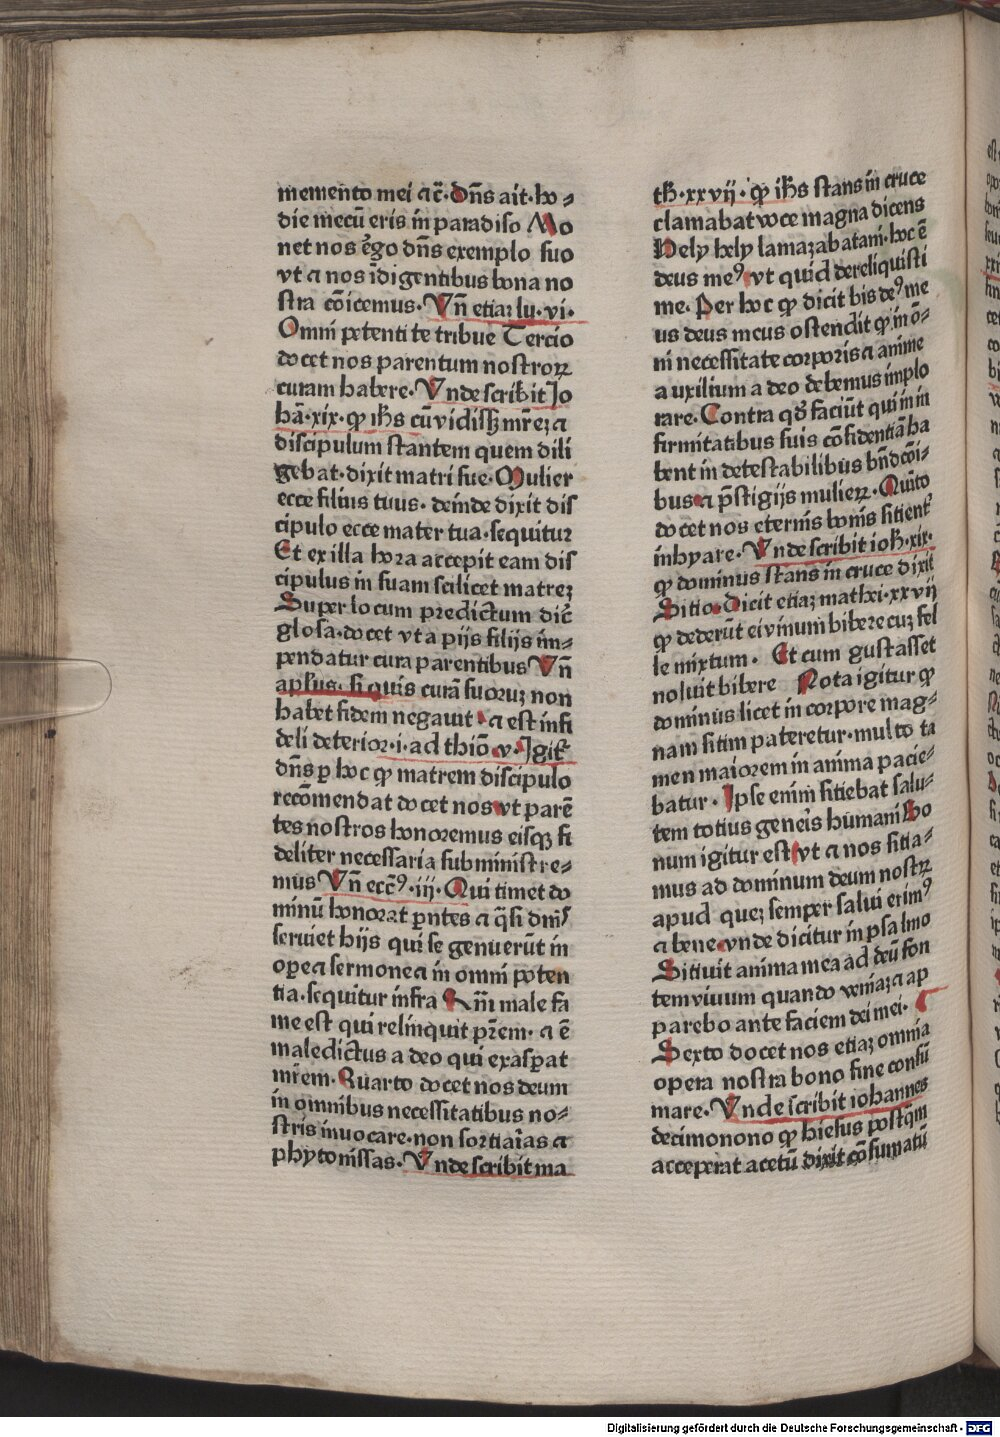 memento mei ⁊c̃· Dñs ait· ho⸗
die mecũ eris in paradiso Mo
net nos ẽgo dñs exemplo suo
vt ⁊ nos ĩdigentibus bona no
stra cõicemus· Vñ etiaꝫ lu· vi·
Omni petenti te tribue Tercio
docet nos parentum nostroꝝ
curam habere· Vnde scribit Jo
hã· xix· ꝙ ih̃s cũ vidissꝫ mr̃eꝫ ⁊
discipulum stantem quem dili
gebat· dixit matri sue· Mulier
ecce filius tuus· deinde dixit dis
cipulo ecce mater tua· sequitur
Et ex illa hora accepit eam dis
cipulus in suam scilicet matreꝫ
Super locum predictum dic̃
glosa· docet vt a pijs filijs im⸗
pendatur cura parentibus Vñ
apl̃us· si quis curã suoruꝫ non
habet fidem negauit · ⁊ est infi
deli deterior· i· ad thiõ· v· Jgit᷑
dñs ꝑ hoc ꝙ matrem discipulo
recõmendat docet nos vt parẽ
tes nostros honoremus eisqꝫ fi
deliter necessaria subministre⸗
mus Vñ ecc̃ꝰ· iij· Qui timet do
minũ honorat pñtes ⁊ q̃si dnĩs
seruiet hijs qui se genuerũt in
ope ⁊ sermone ⁊ in omni poten
tia· sequitur infra Km̃ male fa
me est qui relinquit pr̃em· ⁊ ẽ
maledictus a deo qui exasꝑat
mr̃em· Quarto docet nos deum
in omnibus necessitatibus no⸗
stris inuocare· non sortiarias ⁊
phytonissas· Vnde scribit ma
th̃· xxvij · ꝙ ih̃s stans in cruce
clamabat voce magna dicens
Hely hely lamazabatani· hoc ẽ
deus meꝰ vt quid dereliquisti
me· Per hoc ꝙ dicit bis deꝰ me
us deus meus ostendit ꝙ in õ⸗
ni necessitate corporis ⁊ anime
auxilium a deo debemus implo
rare· Contra qd̃ faciũt qui in in
firmitatibus suis cõfidentiã ha
bent in detestabilibus bñdcõi⸗
bus ⁊ p̃stigijs mulieꝝ· Quĩto
docet nos eternis bonis sitient᷑
inhyare· Vnde scribit ioh̃· xix·
ꝙ dominus stans in cruce dixit
Sitio· Dicit etiaꝫ mathei· xxvij
ꝙ dederũt ei vinum bibere cuꝫ fel
le mixtum · Et cum gustasset
noluit bibere Nota igitur ꝙ
dominus licet in corpore mag⸗
nam sitim pateretur· multo ta
men maiorem in anima pacie⸗
batur · Ipse enim sitiebat salu⸗
tem totius generis humani Bo
num igitur est vt ⁊ nos sitia⸗
mus ad dominum deum nostꝝ
apud queꝫ semper salui erimꝰ
⁊ bene vnde dicitur in psalmo
Sitiuit anima mea ad deũ fon
tem viuum quando veniaꝫ ⁊ ap
parebo ante faciem dei mei·
Sexto docet nos etiaꝫ omnia
opera nostra bono fine consũ
mare· Vnde scribit iohannes
decimonono ꝙ hiesus postq̃m
acceperat acetũ dixit cõsumatũ
Digitalisierung gefördert durch die Deutsche Forschungsgemeinschaft - DFG